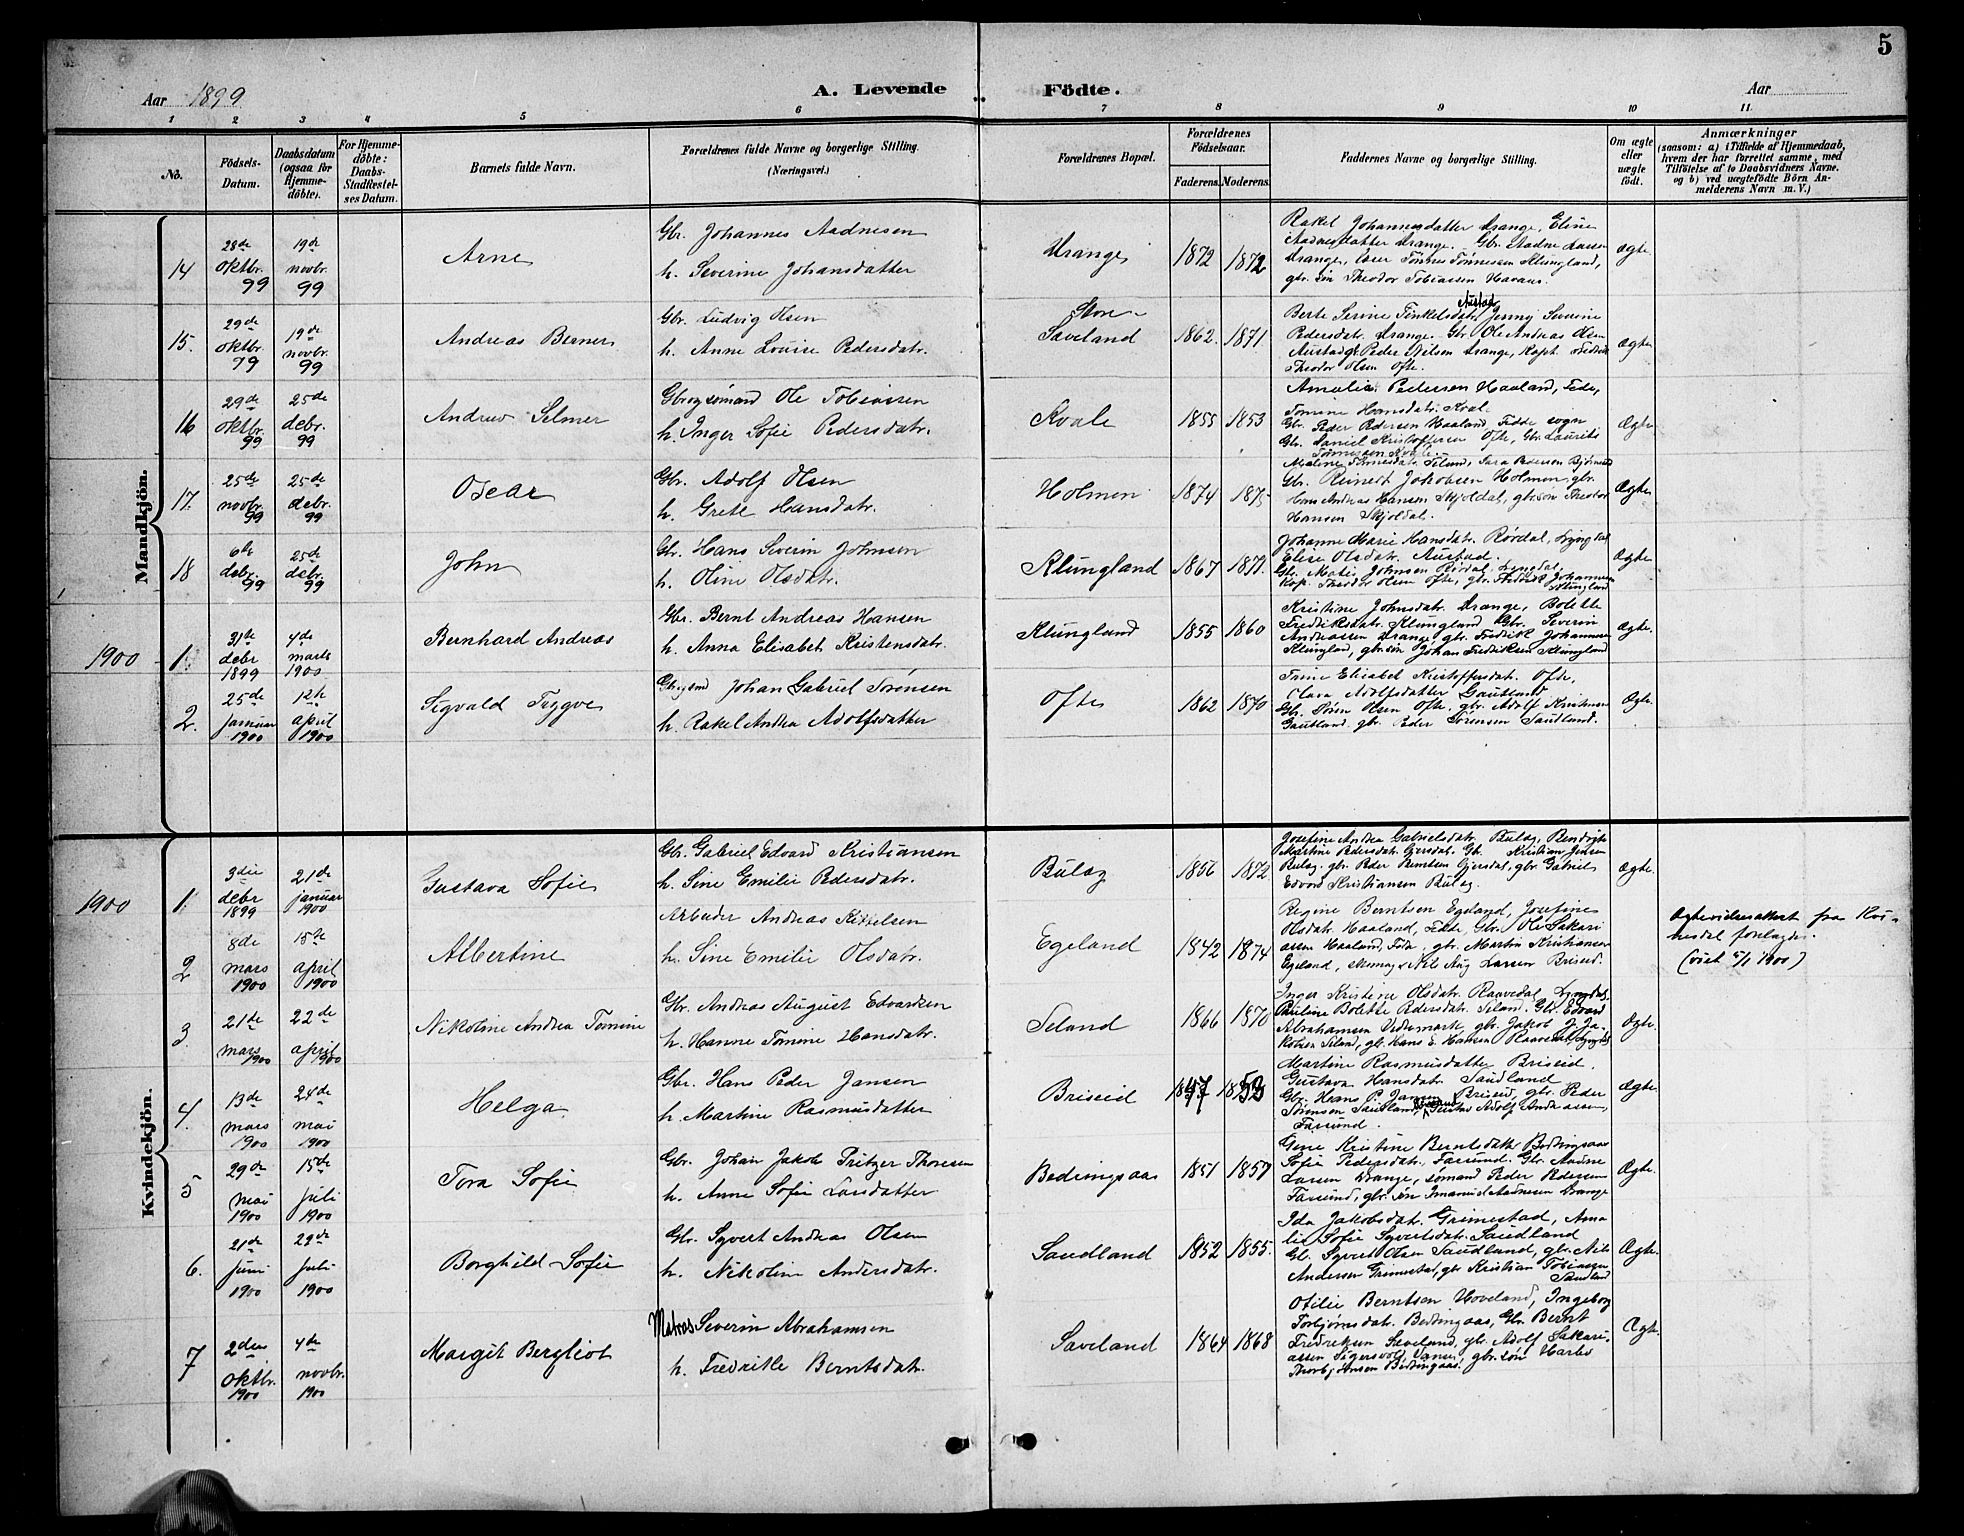 5
Aar 1899
A. Levende Födte.
Aar
1 2 3 4 5 6 7 8 9 10 11.
No.
Födsels-Datum.
Daabsdatum (ogsaa for Hjemmedöbte).
For Hjemmedöbte: Daabs-Stadfæstelses Datum.
Barnets fulde Navn.
Forældrenes fulde Navne og borgerlige Stilling.
(Næringsvei.)
Forældrenes Bopæl.
Forældrenes Födselsaar.
Faderens. Moderens.
Faddernes Navne og borgerlige Stilling.
Om ægte eller uægte födt.
Anmærkninger
(saasom: a) i Tilfælde af Hjemmedaab, hvem der har forrettet samme, med Tilföielse af to Daabsvidners Navne. og b) ved uægtefödte Börn Anmelderens Navn m. V.)
Mandkjön.
14 28de oktbr. 99 19de novbr. 99 Arne
Gbr. Johannes Aadnesen
h. Severine Johansdatter
Drange 1872 1872
Rakel Johannesdatter Drange, Eline
Aadnesdatter Drange. Gbr Aadne Larsen
Drange, Tønnes Tønnessen Klungland,
gbr. søn Theodor Tobiassen Havaas.
Ægte
15. 29de oktbr. 99 19de novbr. 99 Andreas Berner
Gbr. Ludvig Olsen
h. Anne Louise Pedersdatr.
Store-Saveland 1862. 1871.
Berte Serine Tinkelsdatr. Austad, Jenny Severine
Pedersdatr. Drange. Gbr Ole Andreas Olsen
Austad, gbr. Peder Nielsen Drange, Kapt.
Theodor Olsen Ofte.
Ægte
16 29de oktbr. 99 25de debr. 99 Andreas Selmer
Gbr og sømand Ole Tobiassen
h. Inger Sofie Pedersdatr.
Kvale 1855 1853
Amalie Pedersen Haaland, Fede,
Tomine Hansdatr. Kvale
Gbr. Peder Pedersen Haaland, Fedde sogn
Gbr. Daniel Kristoffersen Ofte, Gbr. Laurits
Tønnessen Kvale.
Ægte
17. 25de novbr. 99 25de debr. 99 Oscar
Gbr. Adolf Olsen
h. Grete Hansdatr.
Holmen 1874 1875
Maline Tønnesdatr. Seland, Sara Pedersen
Gbr. Reinert Jakobsen Holmen, gbr.
Hans Andreas Hansen Skjoldal, gbr søn Theodor
Hansen Skjoldal.
Ægte
18 6te debr. 99 25de debr. 99 John
Gbr. Hans Severin Johnsen
h. Oline Olsdatr.
Klungland 1867 1871.
Johanne Marie Hansdatr. Rørdal, Lyngdal
Elise Olsdatr. Austad.
Gbr. Mathis Johnsen Rørdal, Lyngdal,
Kap. Theodor Olsen Ofte, gbr. Fredrik Johannesen
Klungland
Ægte
1900
1. 31te debr 1899 4de marts 1900 Bernhard Andreas
Gbr. Bernt Andreas Hansen
h. Anna Elisabet Kristensdatr.
Klungland 1855 1860
Kristine Johnsdatr. Drange, Bolette
Fredriksdatr. Klungland. Gbr. Severin
Andreassen Drange, gbr. Fredrik Johannesen
Klungland, gbr søn Johan Fredriksen Klungland
Ægte.
2. 25de januar 1900 12te april 1900 Sigvald Trygve
Johan Gabriel Sørensen
h. Rakel Andrea Adolfsdatter
Ofte 1862 1870
Trine Elisabet Kristoffersdatr. Ofte,
Clara Adolfsdatter Gautland
Gbr. Søren Olsen Ofte, gbr. Adolf Kristensen
Gautland, gbr. Peder Sørensen Saudland.
Ægte.
Kvindekjön.
1900
1. 3die debr 1899 21de januar 1900 Gustava Sofie
Gbr. Gabriel Edvard Kristiansen
h. Sine Emilie Pedersdatr.
Bulag 1856 1872
Josefine Andrea Gabrielsdatr. Bulag,
Martine Pedersdatr. Gjersdal. Gbr. Kristian Jensen
Bulag, gbr. Peder Berntsen Gjersdal, gbr Gabriel
Edvard Kristiansen Bulag.
Ægte.
2 8de mars 1900 15te april 1900 Albertine
Arbeider Andreas Kittelsen
h. Sine Emilie Olsdatr.
Egeland 1842 1874
Regine Berntsen Egeland, Josefine
Olsdatr. Haaland, Fedde, Gbr. Ole Sakari
assen Haaland, Fede, gbr. Martin Kristiansen
Egeland, Nils Aug Larsen Briseid.
Ægtevielsesattest fra Kvi-
nesdal forelagdes.
3. 21de mars 1900 22de april 1900 Nikoline Andrea Tomine
Gbr. Andreas August Edvardsen
h. Hanne Tomine Hansdatr.
Seland 1866 1870
Inger Kristine Olsdatr. Raavedal, Lyngdal
Pauline Bolette Pedersdatr. Seland. Gbr. Edvard
Abrahamsen Vedemark, gbr. Jakob J. Ja-
kobsen Seland, gbr. Hans E. Hansen Raavedal, Lyngdal
Ægte.
4. 13de mars 1900 24de mai 1900 Helga
Gbr. Hans Peder Jansen
h. Martine Rasmusdatter
Briseid 1847 1853
Martine Rasmusdatter Briseid,
Gustava Hansdatr. Saudland
Gbr. Hans P. Jansen Briseid, gbr. Peder
Sørensen Saudland, Gustav Adolf Andreassen,
Farsund.
Ægte
5 29de mai 1900 15de juli 1900 Tora Sofie
Gbr. Johan Jakob Pritzer Thoresen
h. Anne Sofie Larsdatter
Bedringsaas 1851 1857
Gine Kristine Berntsdatter Bedringsaas
Sofie Pedersdatr. Farsund. Gbr. Aadne
Larsen Drange, sømand Peder Pedersen
Farsund, gbr. søn Imanuel Aadnesen Drange
Ægte.
6. 21de juni 1900 29de juli 1900 Borghild Sofie
Gbr. Syvert Andreas Olsen
h. Nikoline Andersdatr.
Saudland 1852 1855.
Ida Jakobsdatr. Grimestad, Ama
lie Sofie Syvertsdatr. Saudland
Gbr. Syvert Olsen Saudland, gbr. Nils
Andersen Grimestad, gbr Kristian Tobiassen
Saudland
Ægte.
7 2den oktbr. 1900 4de novbr. 1900 Margit Bergliot
Matros Severin Abrahamsen
h. Fredrikke Berntsdatr.
Saveland 1864 1868
Otilie Berntsen Hoveland, Ingeborg
Torbjørnsdatr. Bedringsaas, Gbr. Bernt
Fredriksen Saveland, gbr. Adolf Sakari-
assen Sigersvold, Vanse, gbr. søn Harbo
Thorbjørnsen Bedringsaas.
Ægte.